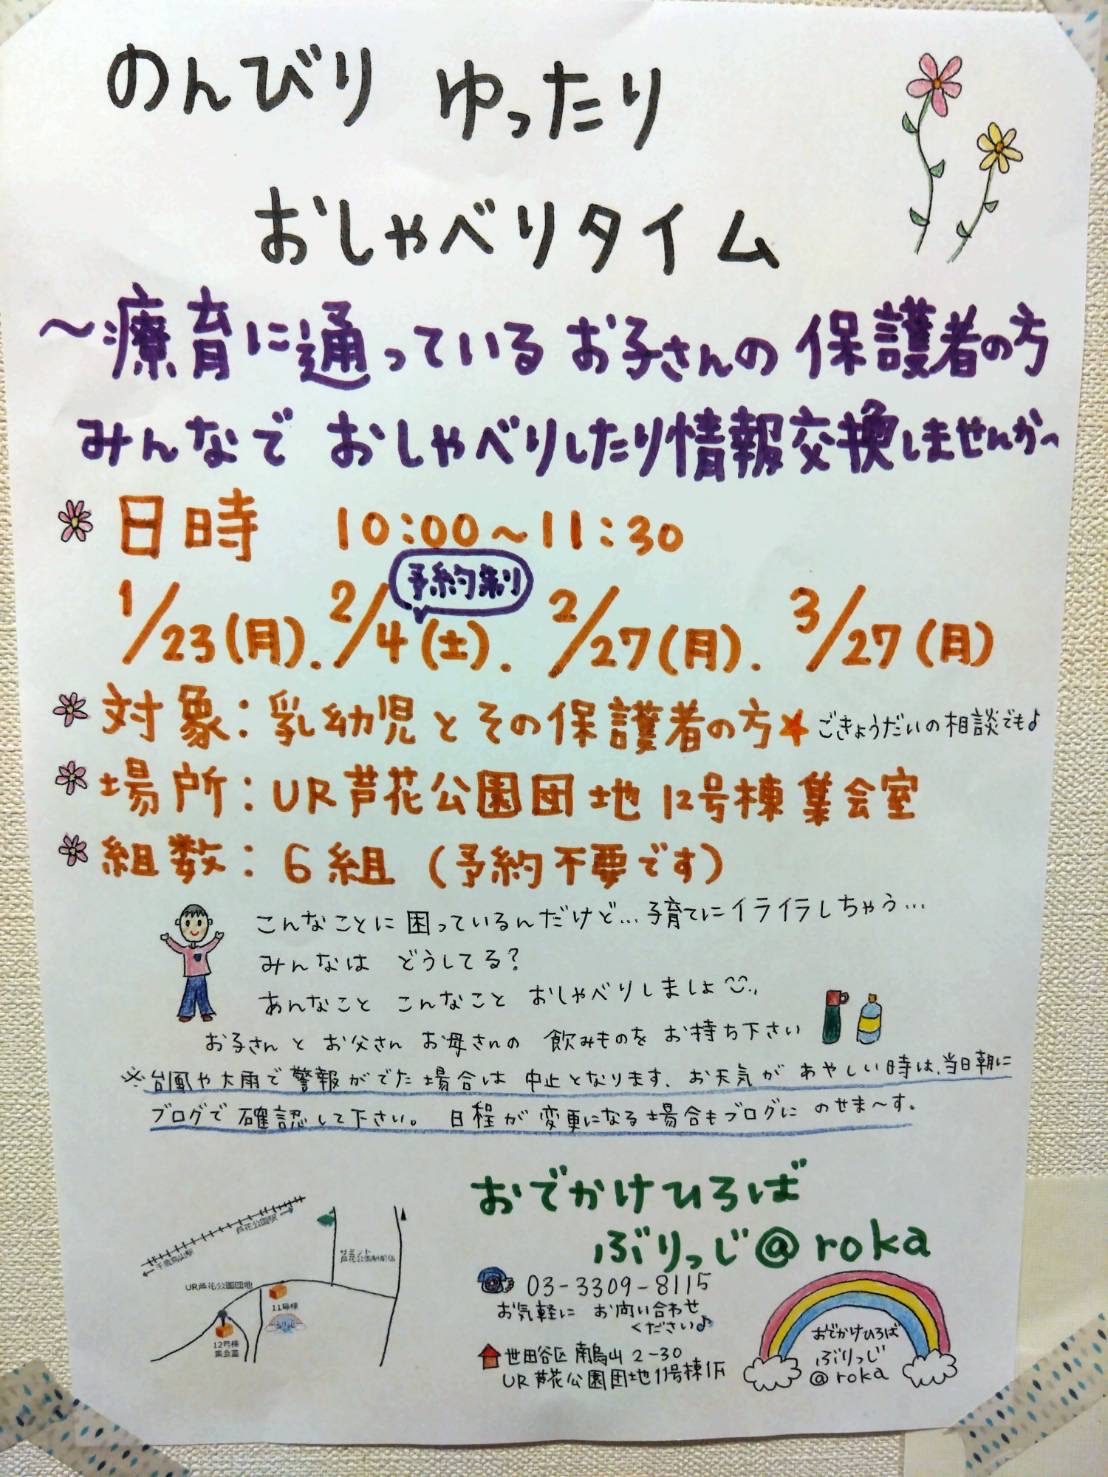 のんびり ゆったり
おしゃべりタイム
～療育に通っている お子さんの 保護者の方
みんなで おしゃべりしたり情報交換しませんか～
日時 10:00～11:30
予約制
1/23(月). 2/4(土). 2/27(月). 3/27(月)
対象:乳幼児とその保護者の方★ごきょうだいの相談でも♪
場所:UR芦花公園団地 12号棟集会室
組数:6組(予約不要です)
こんなことに困っているんだけど…子育てにイライラしちゃう…
みんなは どうしてる?
あんなこと こんなこと おしゃべりしましょ
お子さんと お父さん お母さんの 飲みものを お持ち下さい
※台風や大雨で警報がでた場合は 中止となります、お天気が あやしい時は、当日朝に
ブログで確認して下さい。 日程が変更になる場合もブログに のせま～す。
おでかけひろば
ぶりっじ@roka
03-3309-8115
お気軽に お問い合わせ
ください♪
世田谷区南烏山2-30
UR芦花公園団地11号棟1F
おでかけひろば
ぶりっじ
@roka
芦花公園駅
千歳烏山駅
UR芦花公園団地
11号棟
12号棟
集会室